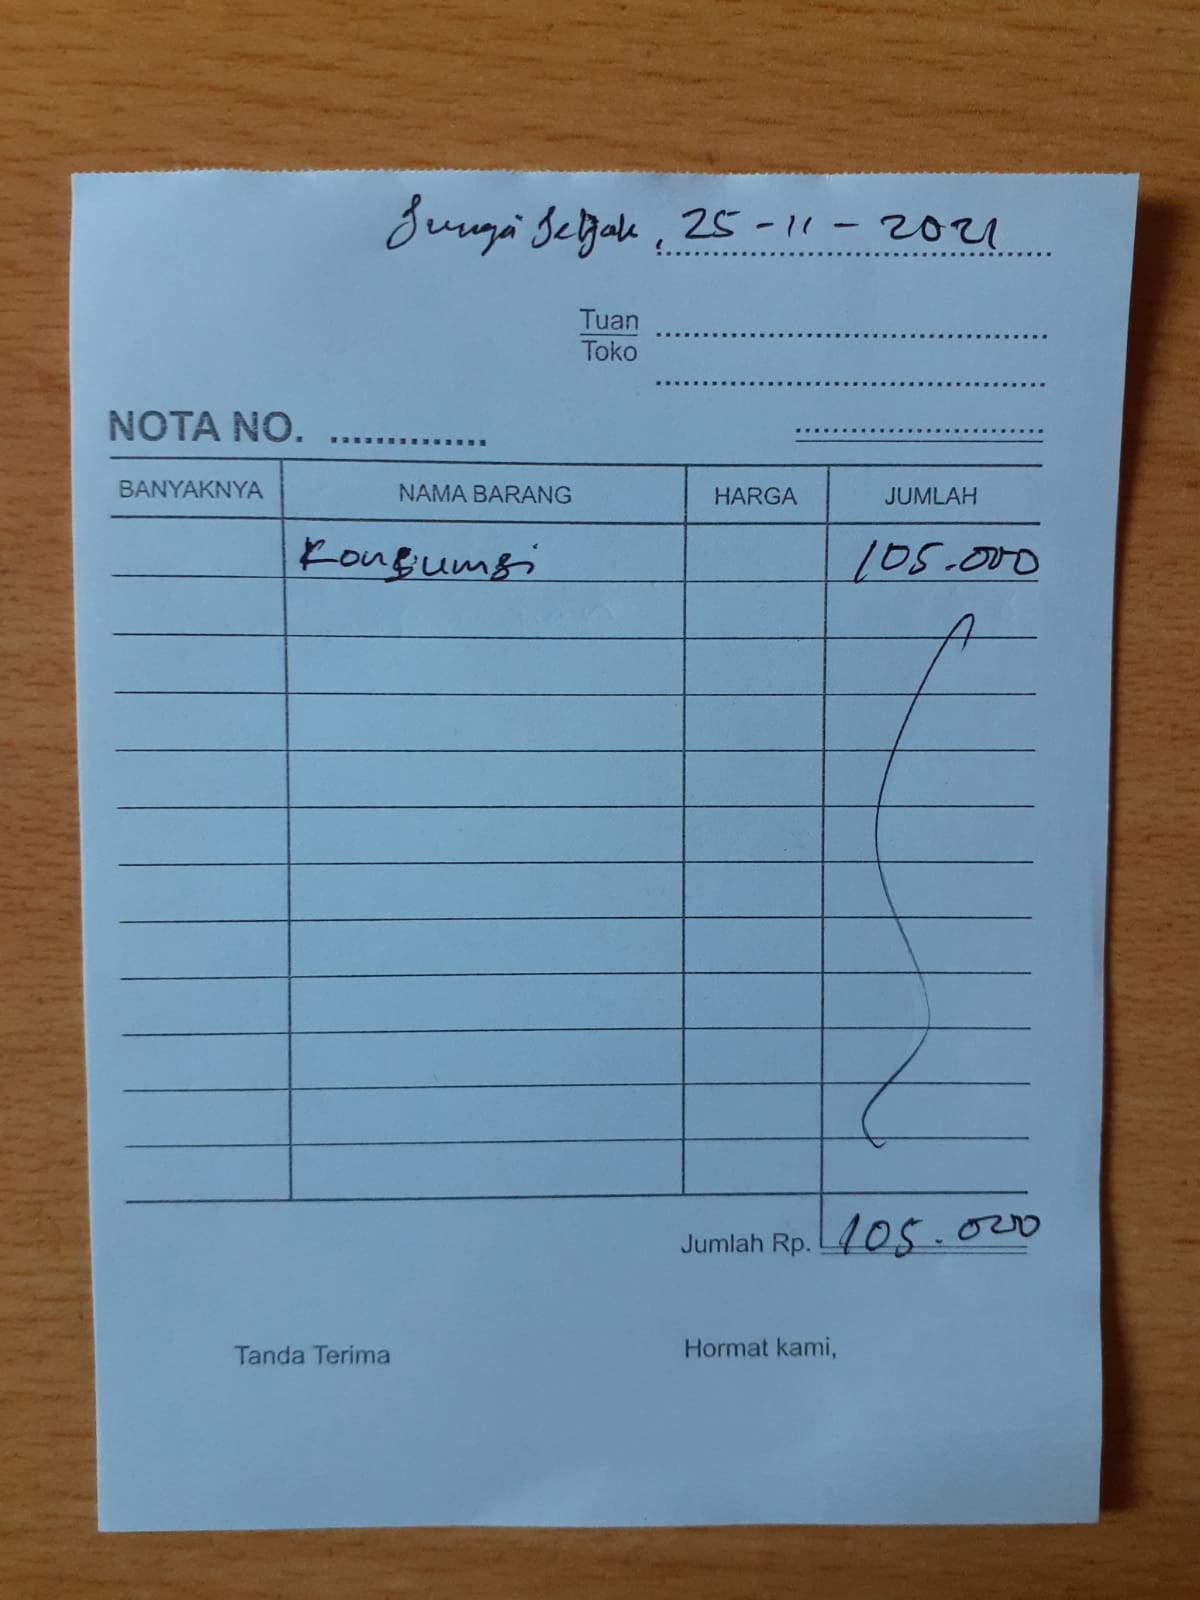 Sungai Selyak, 25-11-2021
Tuan
Toko
NOTA NO.
BANYAKNYA NAMA BARANG HARGA JUMLAH
Konsumsi 105.000
Jumlah Rp. 105.000
Tanda Terima Hormat kami,